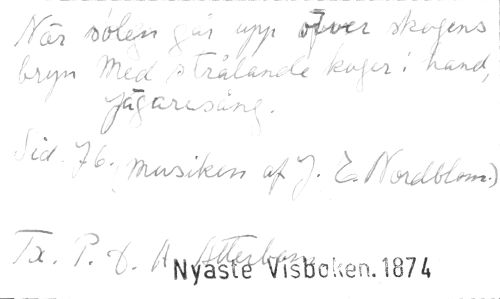 När solen går upp öfver skogens
bryn Med strålande koger i hand,
Jägaresång.
Sid. 76. (musiken af J. E. Nordblom.)
Tx. P. D. A. Atterbom
Nyaste Visboken. 1874